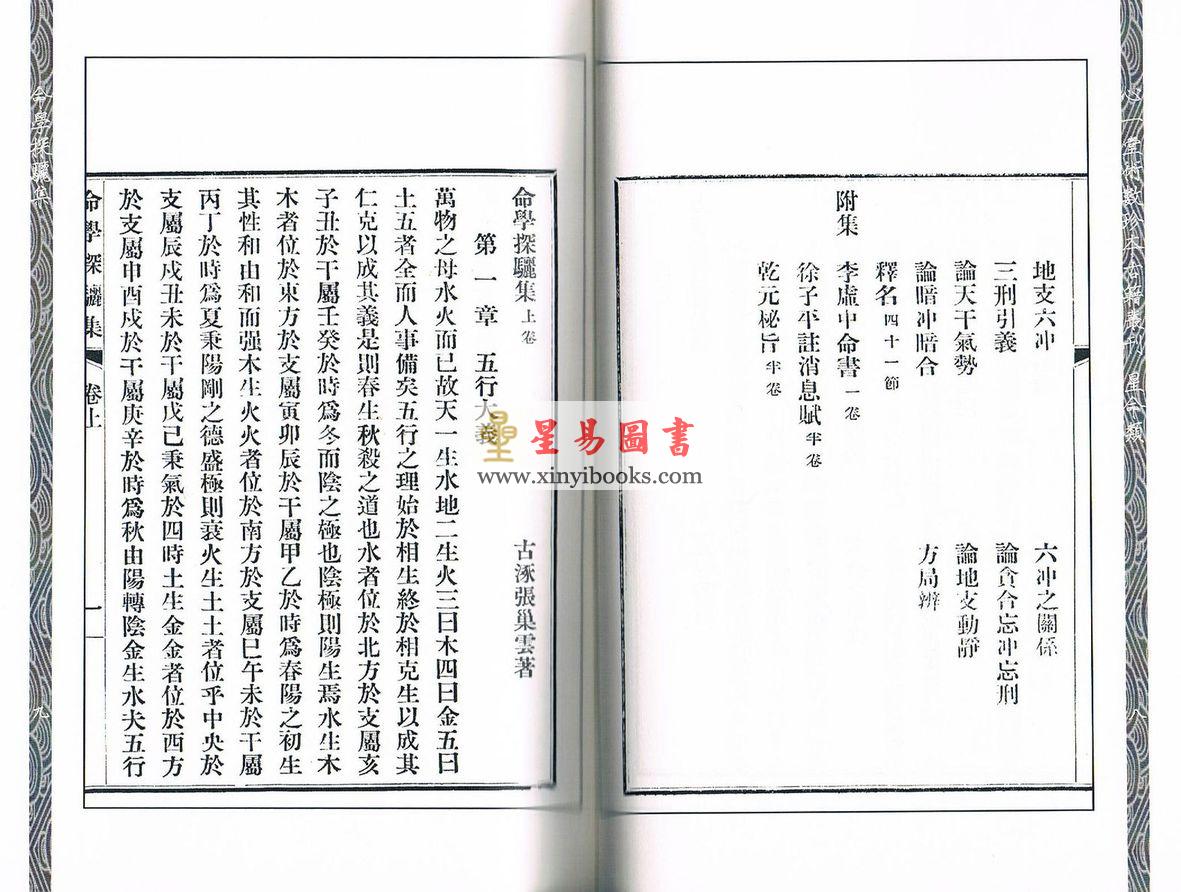 心一堂術數珍本古籍叢刊 星命類
八
地支六冲
六冲之關係
三刑引義
論貪合忘冲忘刑
論天干氣勢
論地支動靜
論暗冲暗合
方局辨
釋名四十一節
附集
李虛中命書一卷
徐子平註消息賦半卷
乾元秘旨半卷
星易圖書
www.xinyibooks.com
命學探驪集上卷
古涿張巢雲著
第一章 五行大義
萬物之母水火而已故天一生水地二生火三曰木四曰金五曰
土五者全而人事備矣五行之理始於相生終於相克生以成其
仁克以成其義是則春生秋殺之道也水者位於北方於支屬亥
子丑於干屬壬癸於時爲冬而陰之極也陰極則陽生焉水生木
木者位於東方於支屬寅卯辰於干屬甲乙於時爲春陽之初生
其性和由和而强木生火火者位於南方於支屬巳午未於干屬
丙丁於時爲夏秉陽剛之德盛極則衰火生土土者位乎中央於
支屬辰戍丑未於干屬戊己秉氣於四時土生金金者位於西方
於支屬申酉戍於干屬庚辛於時爲秋由陽轉陰金生水夫五行
命學探驪集 卷上
一
命學探驪集
九